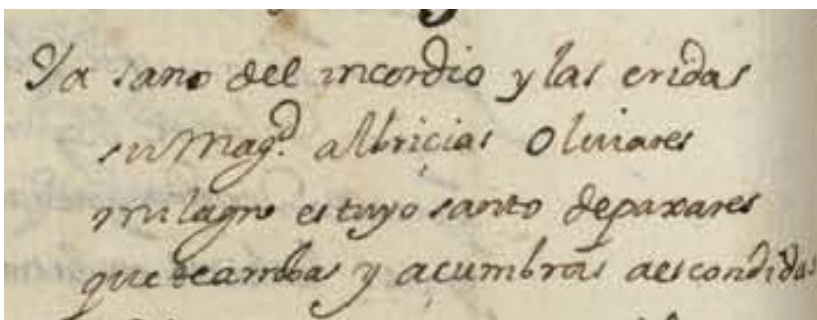 Ya sano del incordio y las eridas
su Mag.d albricias Oliuares
milagro es tuyo santo de paxares
que escarbas y acumbras a escondidas